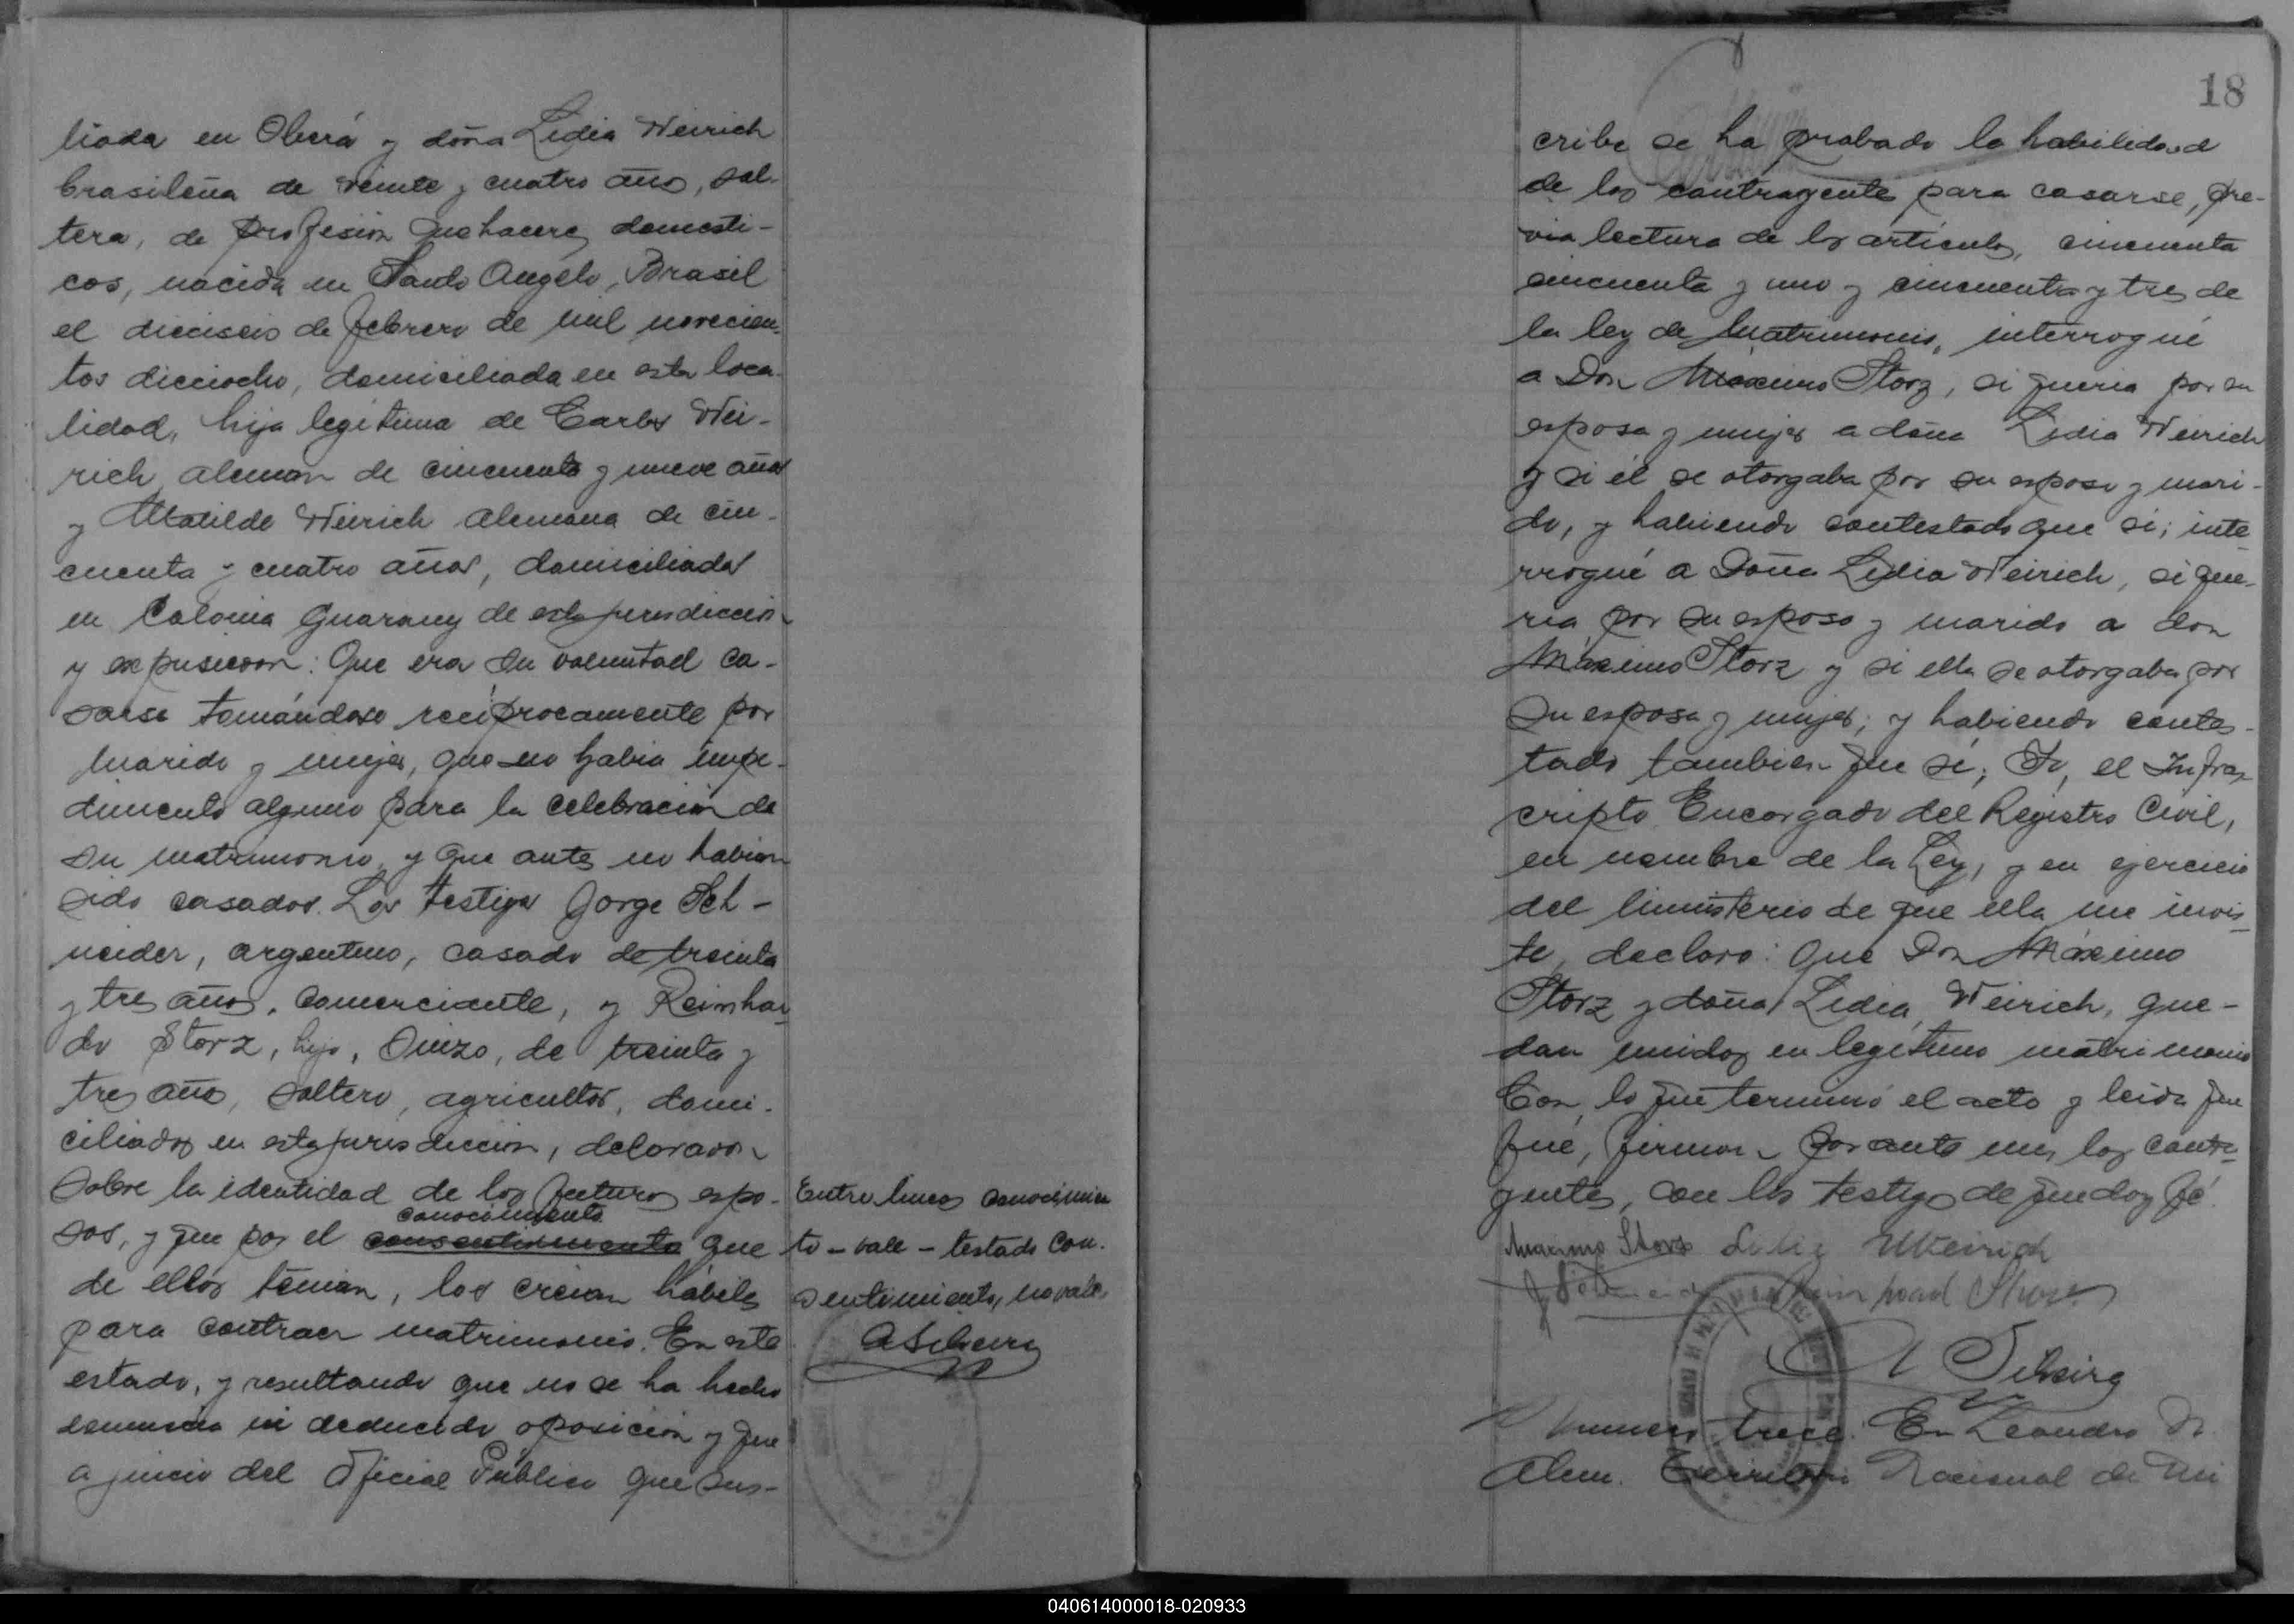 liada en Oberá y doña Lidia Weirich
brasileña de veinte y cuatro año, sol-
tera, de profesión quehaceres domesti-
cos, nacida en Santo Angelo, Brasil
el dieciseis de febrero de mil novecien-
tos dieciocho, domiciliada en esta loca-
lidad, hija legitima de Carlos Wei-
rich, aleman de cincuenta y nueve años
y Matilde Weirich alemana de cin-
cuenta y cuatro años, domiciliados
en Colonia Guarany de esta jurisdiccion
y expusieron: Que era su voluntad ca-
sarse tomándose recíprocamente por
marido y mujer, que no habia impe-
dimento alguno para la celebración de
su matrimonio, y que antes no habian
sido casados. Los testigos Jorge Sch-
neider, argentino, casado de treinta
y tres años, comerciante, y Reinhar-
do Storz, hijo, Suizo, de treinta y
tres año, soltero, agricultor, domi-
ciliados en esta jurisdiccion, delararon
sobre la identidad de los futuros espo-
conocimiento
sos, y que por el consentimiento que
de ellos tenian, los creian hábiles
para contraer matrimonio. En este
estado, y resultando que no se ha hecho
denuncia ni deducido oposición y que
a juicio del Oficial Público que sus-
Entre lineas conocimien
to - vale - testado con-
sentimiento, no vale
18
cribe se ha probado la habilidad
de los contrayentes para casarse, pre-
via lectura de los artículos, cincuenta
cincuenta y uno y cincuenta y tres de
la ley de Matrimonio, interrogué
a Don Máximo Storz, si queria por su
esposa y mujer a doña Lidia Weirich
y si él se otorgaba por su esposo y mari-
do, y habiendo contestado que si; inte-
rrogué a Doña Lidia Weirich, si que-
ria por su esposo y marido a don
Máximo Storz y si ella se otorgaba por
su esposa y mujer; y habiendo contes-
tado tambien que sí; Yo, el Infras-
cripto Encargado del Registro Civil,
en nombre de la Ley, y en ejercicio
del ministerio de que ella me invis-
te, declaro: Que Don Máximo
Storz y doña Lidia Weirich, que-
dan unidos en legitimo matrimonio
Con lo que terminó el acto y leida que
fué, firman por ante mi, los contra-
yentes, con los testigos de que doy fé.
Maximo Storz Lidia Weirich
Storz
Numero trece. En Leandro N.
Alem. Territorio Nacional de Mi
040614000018-020933